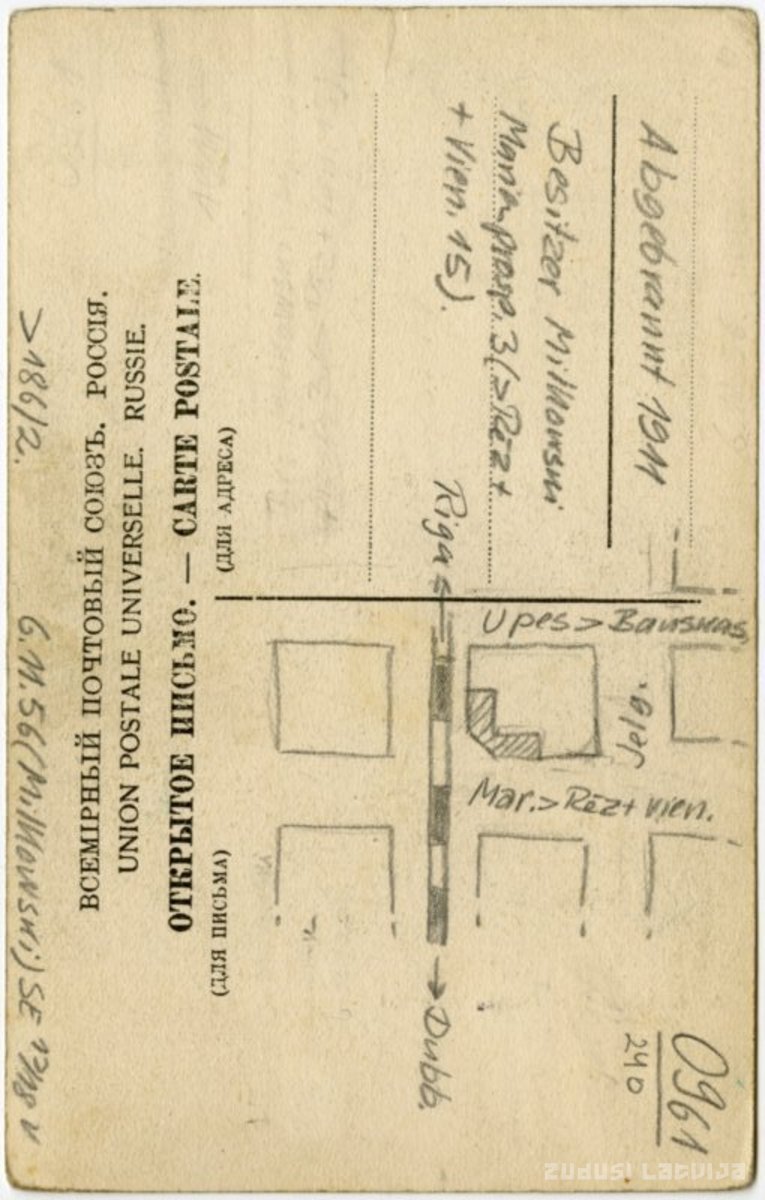 ВСЕМІРНЫЙ ПОЧТОВЫЙ СОЮЗЪ. РОССІЯ.
UNION POSTALE UNIVERSELLE. RUSSIE.
ОТКРЫТОЕ ПИСЬМО. — CARTE POSTALE.
(ДЛЯ ПИСЬМА)
(ДЛЯ АДРЕСА)
Abgebrannt 1911
Besitzer Milkowski
Marienprosp. 3 (> Rēz +
+ Vien. 15).
Riga
Upes > Bauskas
Jelg.
Mar. > Rēz + vien.
→ Dubb.
0961
240
> 186/2.
G. M. 56 (Milkowski) SE 17/18 v
ZUDUSI LATVIJA